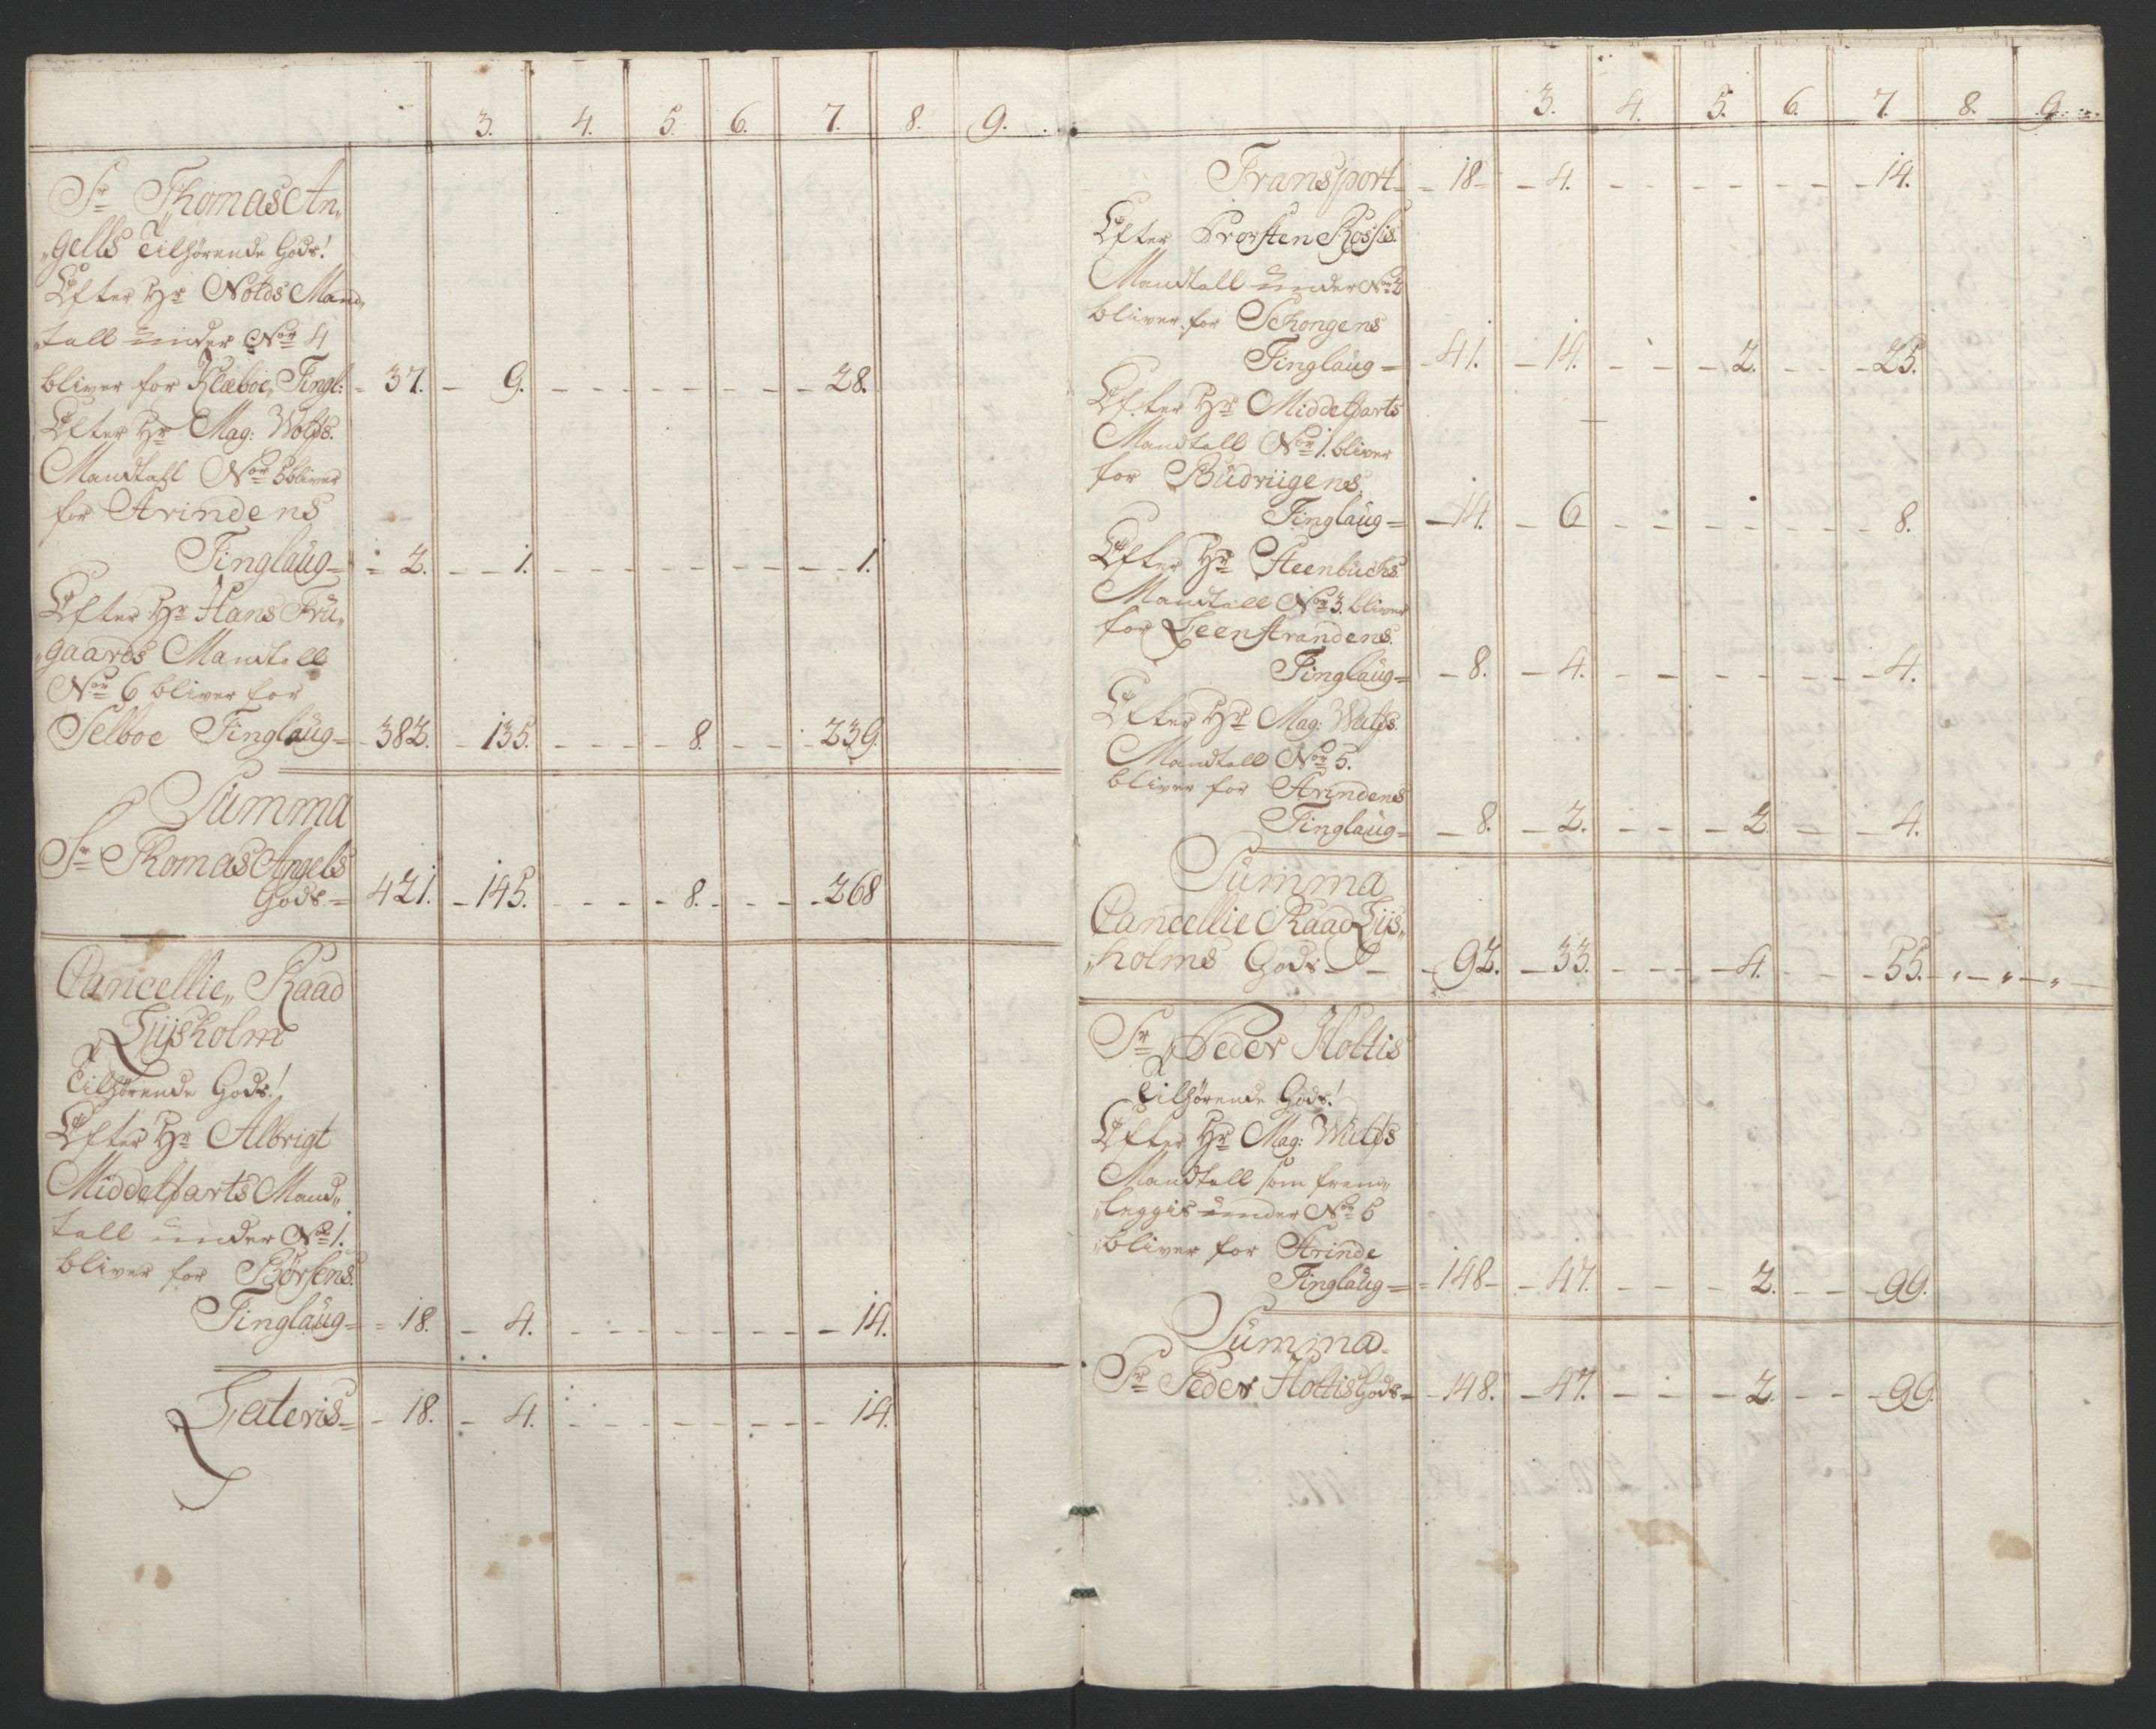 3. 4. 5. 6. 7. 8. 9.
Sr Thomas An„
„gells Tilhørende Gods!
Efter Hr Nolds Mand„
„tall under Nor 4
bliver for Klæboe„ Tingl: - 37. - 9. - - - - - - 28.
Efter Hr Mag: Wolfs.
Mandtall Nor 5 bliver
for Strindens
Tinglaug = 2. - - 1. - - - - - - - 1.
Efter Hr Hans Fru„
„gaards Mandtall
Nor 6 bliver for
Selboe Tinglaug - 382. - 135. - - - - 8. - - - 239.
Summa
Sr Thomas Angels
Gods = 421. - 145. - - - - 8. - - - 268
Cancellie„ Raad
Lijsholm
Tilhørende Gods!
Efter Hr Albrigt
Middelfarts Mand„
tall under No 1.
bliver for Børsens.
Tinglaug = 18. - 4. - - - - - - - 14.
Lateris - 18. - 4. - - - - - - - 14.
3. 4. 5. 6. 7. 8. 9.
Transport - 18 - - 4. - - - - - - - 14.
Efter Prorsten Rossis.
Mandtall under Nor 2
bliver for Schongens
Tinglaug = 41. - 14. - - 2. - - - 25.
Efter Hr Middelfarts
Mandtall Nor 1. bliver
for Büdviigens.
Tinglaug = 14. - 6 - - - - - - - 8.
Efter Hr Steenbuchs.
Mandtall Nor 3. bliver
for Leenstrandens.
Tinglaug = - 8. - 4. - - - - - - - 4.
Efter Hr Mag: Wulfs.
Mandtall Nor 5.
bliver for Strindens
Tinglaug = - 8. - 2. - - - 2. - - 4.
Summa
Cancellie Raad Lijs„
„holms Gods - - 92. - 33. - - - 4. - - - 55. - „ - „ - „ -
Sr Peder Holtis
Tilhørende Gods!
Efter Hr Mag: Wulfs
Mandtall som frem„
„leggis under Nor 5
bliver for Strinde
Tinglaug = - 148 - - 47. - - - 2. - - - 99.
Summa
Sr Peder Holtis Gods = - 148. - 47. - - - 2. - - - 99.